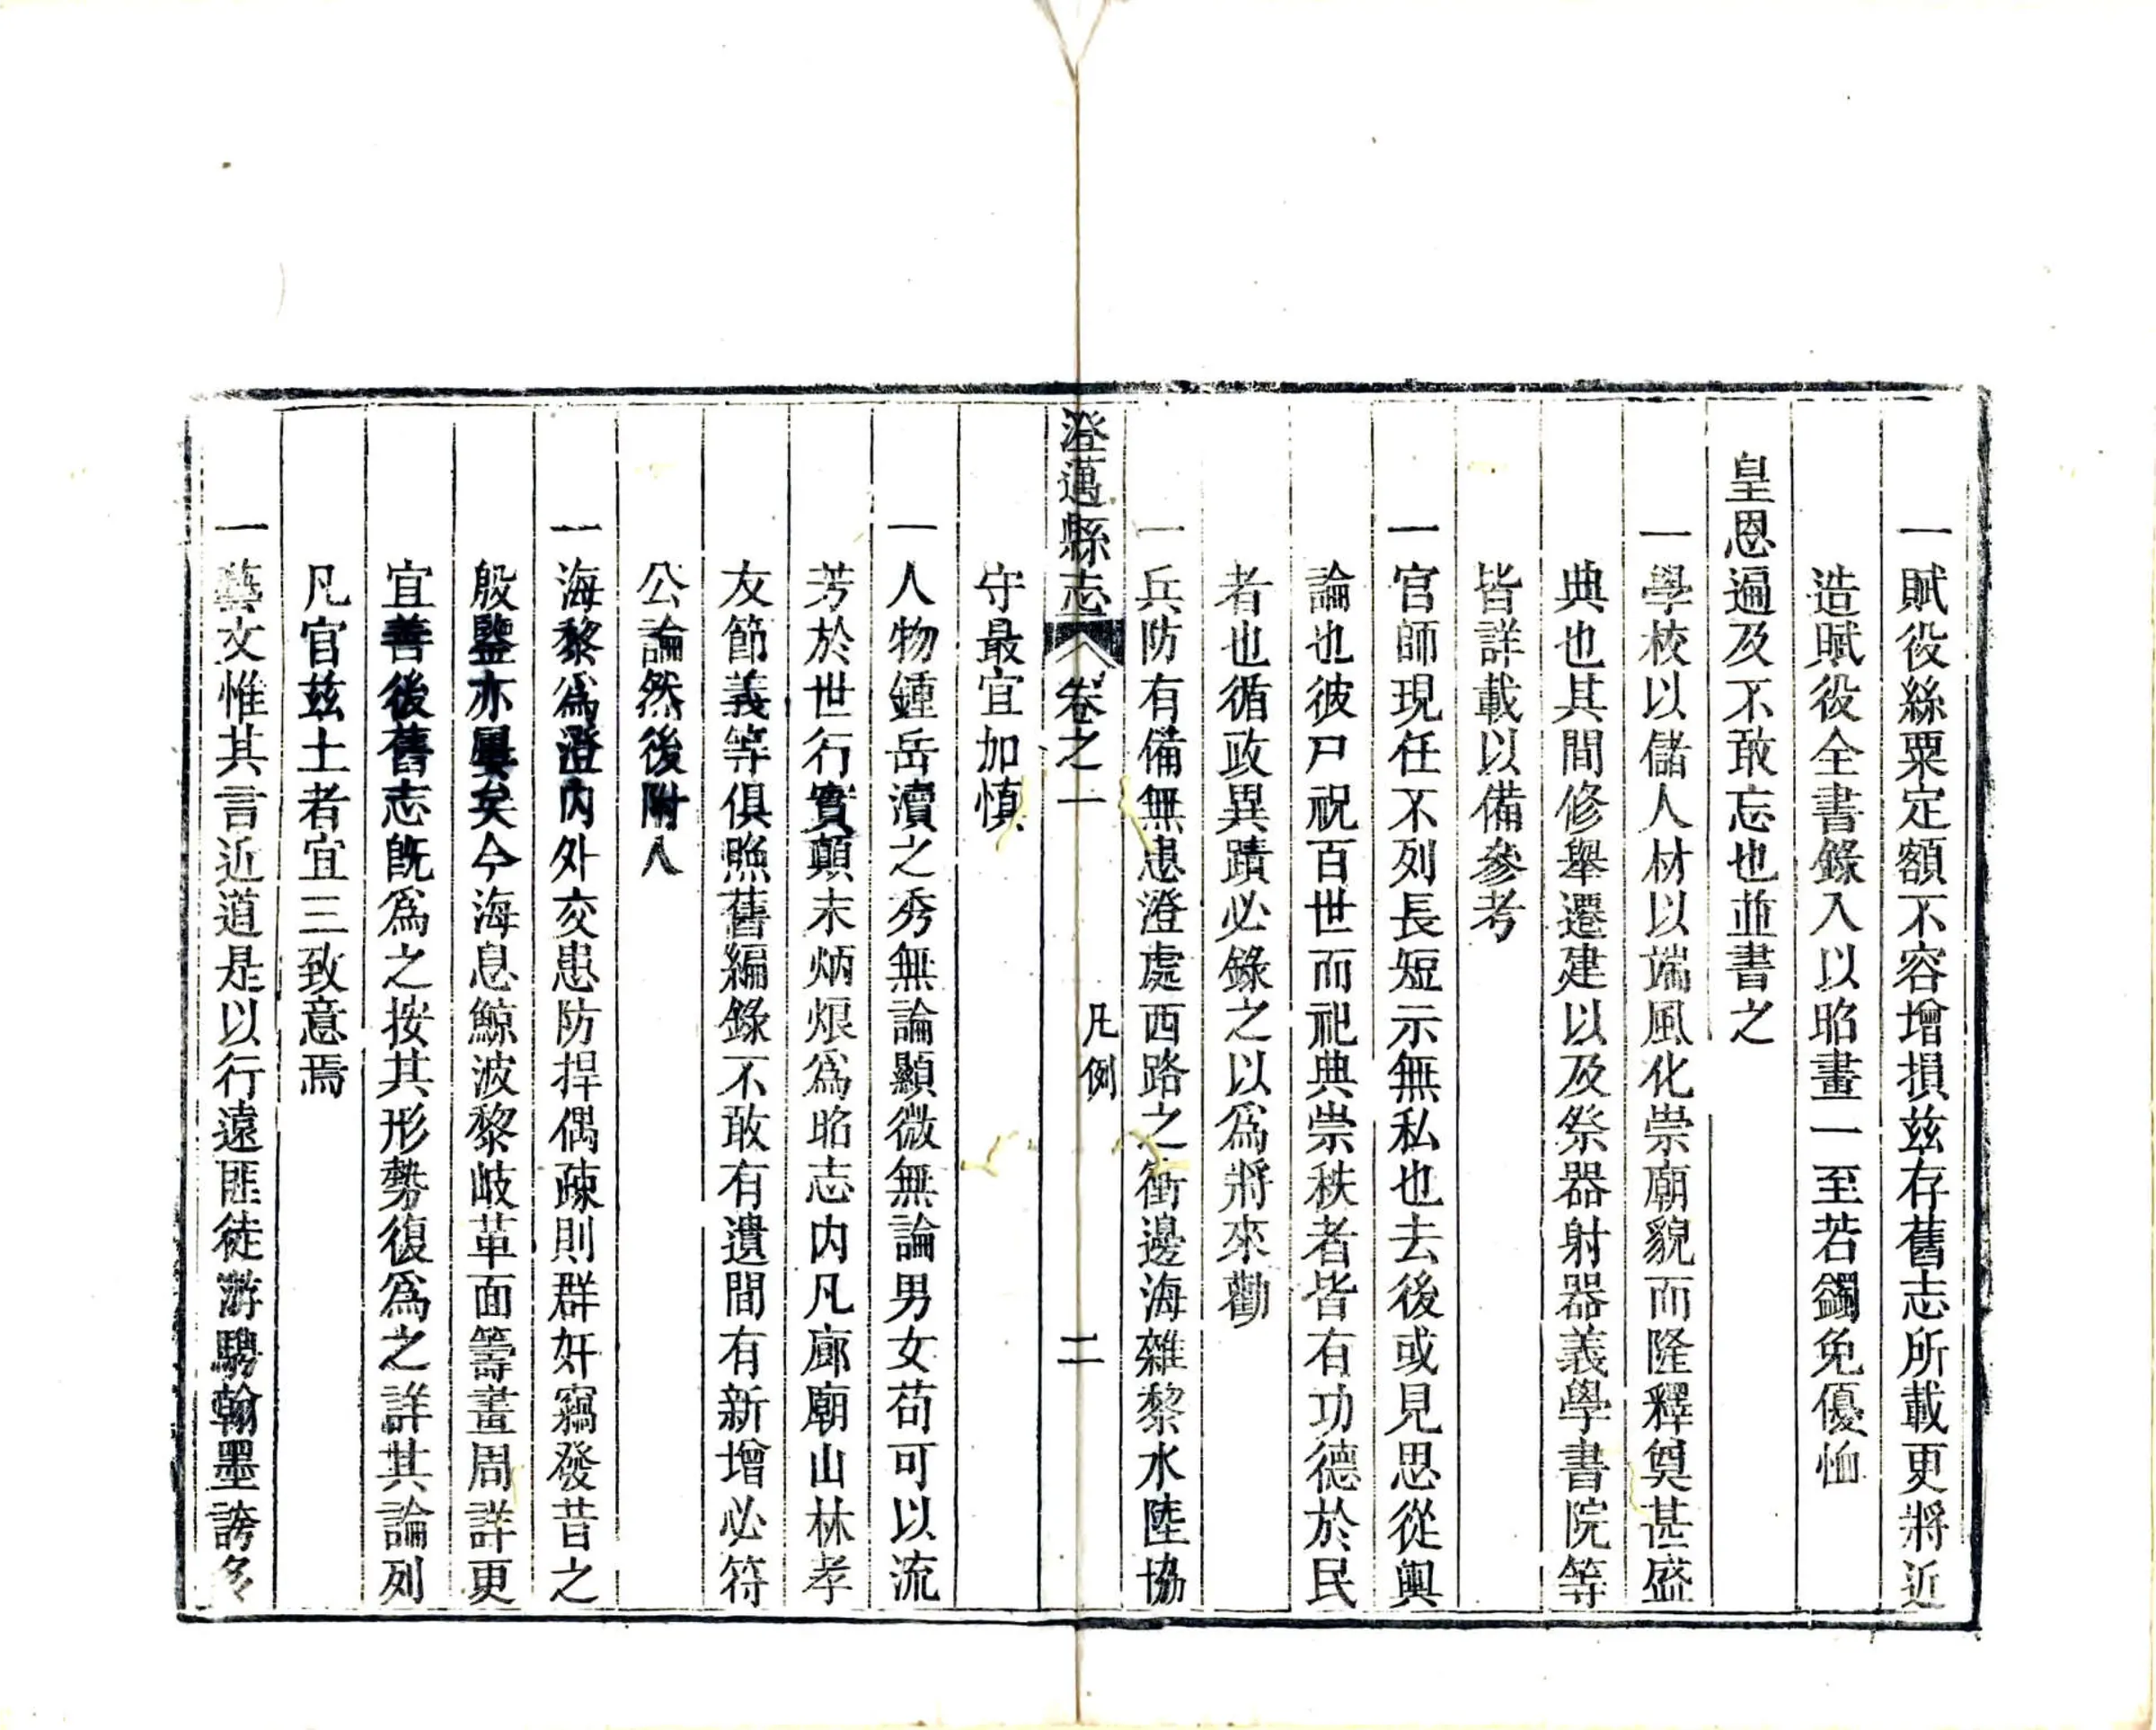 一賦役絲粟定額不容增損茲存舊志所載更將近
造賦役全書錄入以昭畫一至若蠲免優恤
皇恩遍及不敢忘也並書之
一學校以儲人材以端風化崇廟貌而隆釋奠甚盛
典也其間修舉遷建以及祭器射器義學書院等
皆詳載以備參考
一官師現任不列長短示無私也去後或見思從輿
論也彼尸祝百世而祀典崇秩者皆有功德於民
者也循政異蹟必錄之以爲將來勸
一兵防有備無患澄處西路之衝邊海雜黎水陸協
澄邁縣志 卷之一 凡例 二
守最宜加慎
一人物鍾岳瀆之秀無論顯微無論男女苟可以流
芳於世行實顛末炳烺爲昭志内凡廊廟山林孝
友節義等俱照舊編錄不敢有遺間有新增必符
公論然後附入
一海黎爲澄内外交患防捍偶疎則群奸竊發昔之
殷鑒亦屢矣今海息鯨波黎岐革面籌畫周詳更
宜善後舊志旣爲之按其形勢復爲之詳其論列
凡官茲土者宜三致意焉
一藝文惟其言近道是以行遠匪徒游騁翰墨誇多